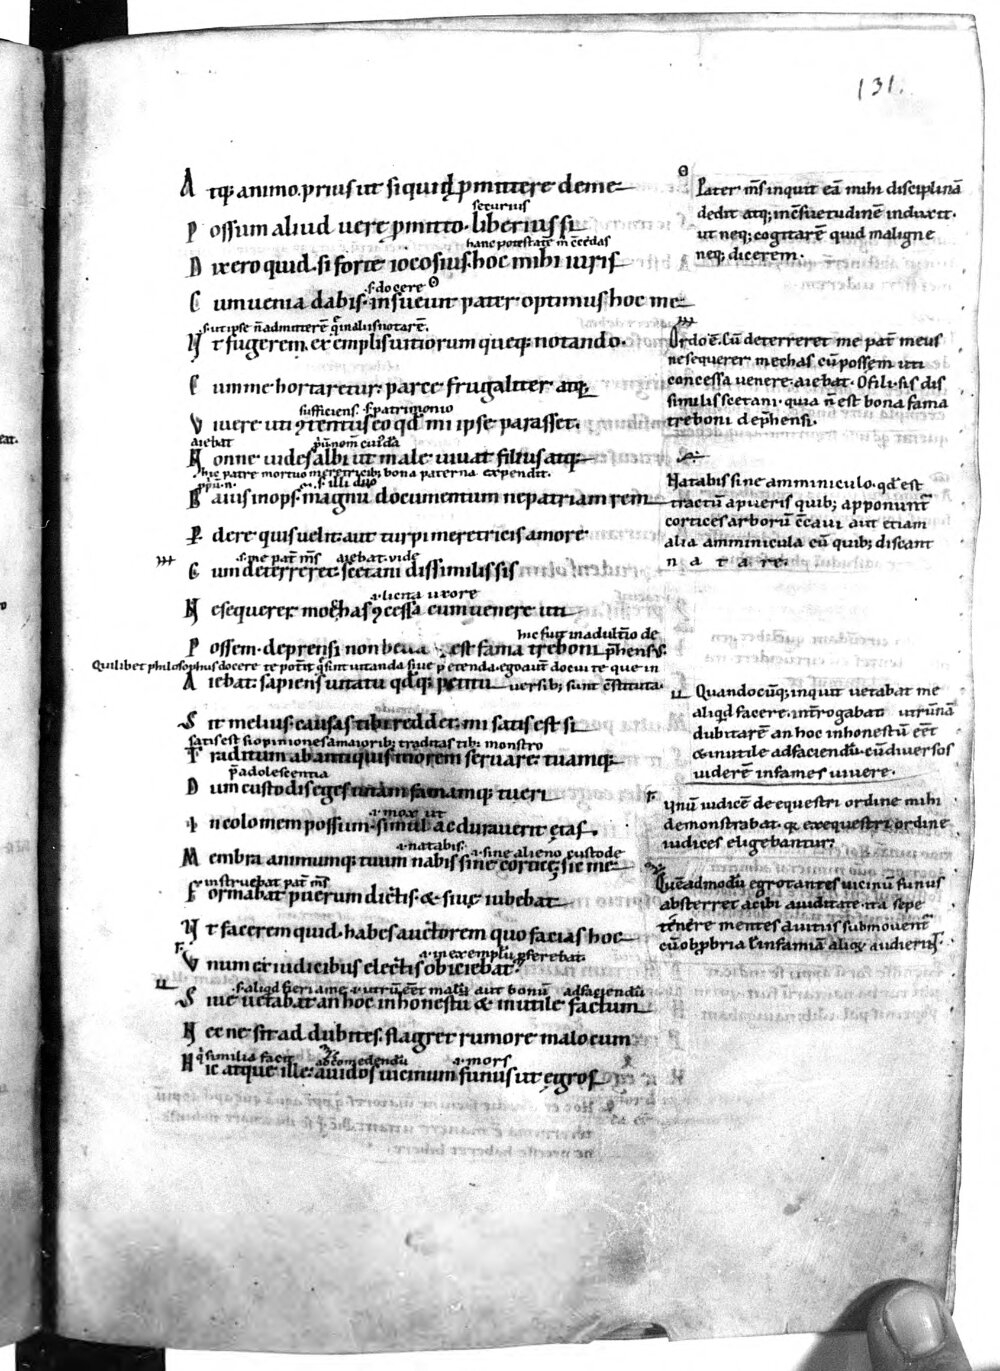 131.
Atq; animo. prius ut siquid ꝓmittere deme
securius
Possum aliud vere ꝓmitto. liberius si
hanc potestatē m̄ c̄cedas
Dixero quid. si forte iocosius. hoc mihi iuris
.s. docere Θ
Cum venia dabis. insuevit pater optimus hoc me
.s. ut ipse n̄ admitterē q̄ in aliis notarē.
Ut fugerem. exemplis vitiorum queq; notando.
Cum me hortaretur. parce frugaliter atq;
sufficiens. s. patrimonio
Vivere uti ꝯtentus eo qd̄ mi ipse parasset.
aiebat
Nonne vides albi ut male vivat filius atq;
hic patre mortuo meretricib; bona paterna expendit.
Baius inops. magnū documentum ne patriam rem
Perdere quis velit. aut turpi meretricis amore
a. me pat̄ m̄s aiebat. vide
Cum deterreret. scetani dissimilis sis
aliena uxore
Ne sequerer mochas ꝯcessa cum venere uti
hic fuit in adult̄io de
Possem. deprensi non bella est fama treboni p̄hensus.
Quilibet philosophus docere te pot̄it q̄ sint vitanda sive petenda. ego aut̄ docui te que in
Aiebat. sapiens vitatu qd̄q; petitu versib; sunt c̄stituta.
Sit melius. causas tibi reddet. mi satis est si
satis est si opiniones a maiorib; traditas tibi monstro
Traditum ab antiquis morem servare. tuamq;
p̄ adolescentia
Dum custodis eges vitam famamq; tueri
a. mox ut
Incolomem possum. simul ac duraverit ętas.
a. natabis. a. sine alieno custode
Membra animumq; tuum nabis sine cortice; sic me
instruebat pat̄ m̄s
Formabat puerum dictis. & sive iubebat
Ut facerem quid. habes auctorem quo facias hoc
a. in exemplū ꝓferebat.
Unum ex iudicibus electis obiciebat.
adfaciendū
Sive vetabat an hoc inhonestū & inutile factum
Necne sit addubites. flagret rumore malo cum
q̄ similia facit ad comedendū a. mors
Hic atque ille. avidos vicinum funus ut ęgros
Θ Pater m̄s inquit eā mihi disciplinā
dedit atq; in c̄suetudinē induxit.
ut neq; cogitarē quid maligne
neq; dicerem.
Ordo ē. Cū deterreret me pat̄ meus
ne sequerer mechas cū possem uti
concessa venere. aiebat. O fili. sis dis
similis scetani. quia n̄ est bona fama
treboni dep̄hensi.
Natabis sine amminiculo. qd̄ est
tractū a pueris quib; apponunt̄
cortices arborū c̄cavi aut etiam
alia amminicula cū quib; discant
natare.
Quandocūq; inquit vetabat me
aliqd̄ facere. int̄rogabat utrūnā
dubitarē an hoc inhonestū eēt
& inutile adfaciendū. cū diversos
viderē infames vivere.
F. Unū iudicē de equestri ordine mihi
demonstrabat. q̄ ex equestri ordine
iudices eligebantur;
Quēadmodū egrotantes vicinū funus
absterret a cibi aviditate. ita sepe
tēnere mentes a vitiis submovent̄
cū obp̄bria l infamiā alioꝝ audierint̄.